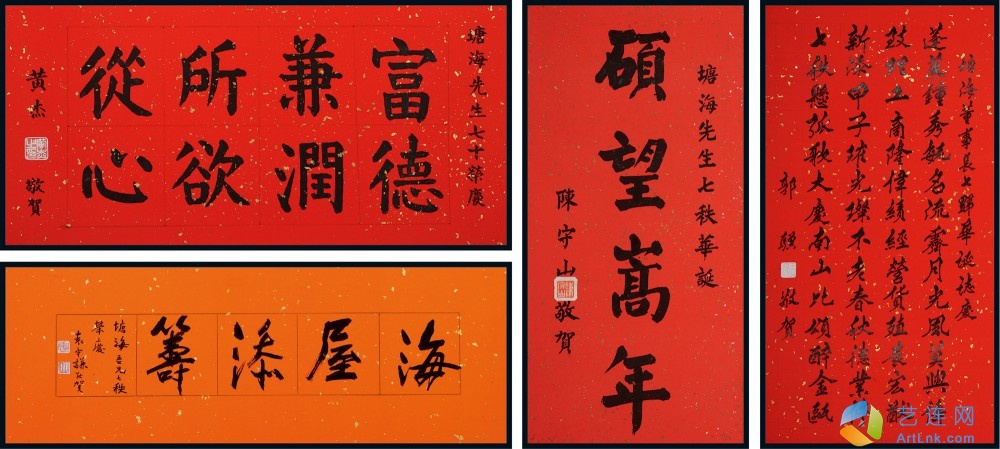 塘海先生七十榮慶
富德
兼潤
所欲
從心
黃杰 敬賀
海屋添籌
塘海吾兄七秩
榮慶
袁守謙敬賀
塘海先生七秩華誕
碩望嵩年
陳守山敬賀
塘海董事長七華誕誌慶
蓬萊鍾秀毓名流霽月光風莫與
工商隆偉績經營貨殖展宏猷
新添甲子璀光璨不老春秋德業
七秩懸弧歌大慶南山比頌醉金甌
郭驥敬賀
艺连网
ArtLnk.com